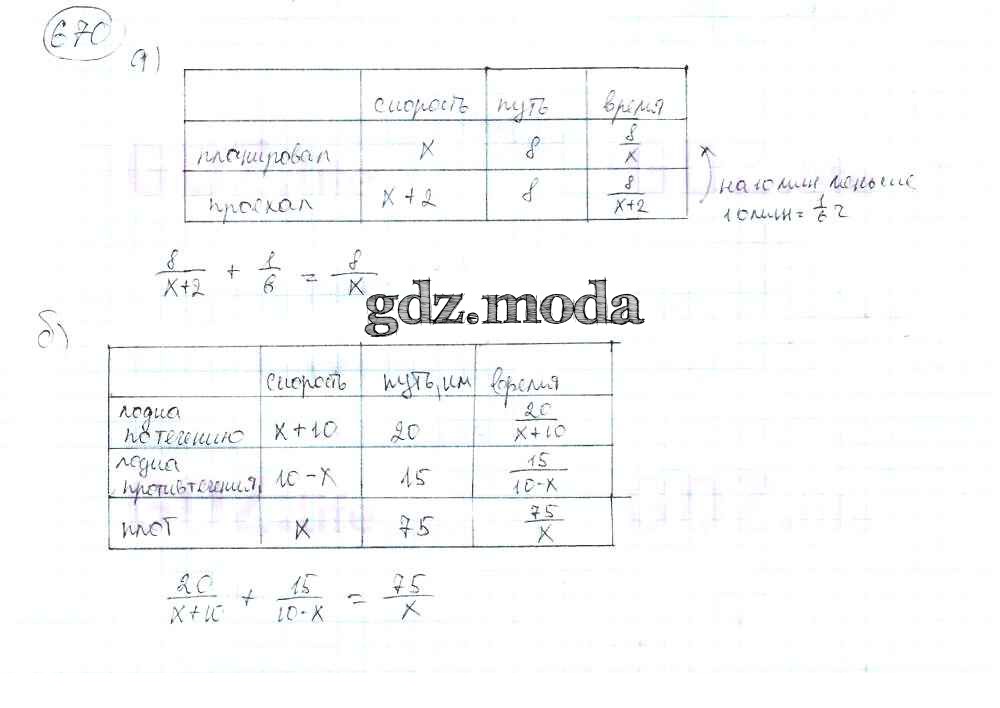 670
а)
скорость путь время
планировал x 8 8/x
проехал x+2 8 8/x+2
на 10 мин меньше
10 мин = 1/6 ч
8/x+2 + 1/6 = 8/x
gdz.moda
б)
скорость путь, км время
лодка
по течению x+10 20 20/x+10
лодка
против течения 10-x 15 15/10-x
плот x 75 75/x
20/x+10 + 15/10-x = 75/x